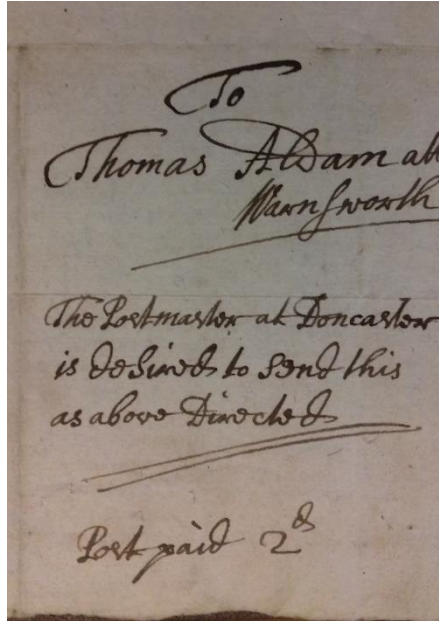 To
Thomas Aldam att
Warnsworth
The Postmaster at Doncaster
is desired to send this
as above Directed
Post paid 2d